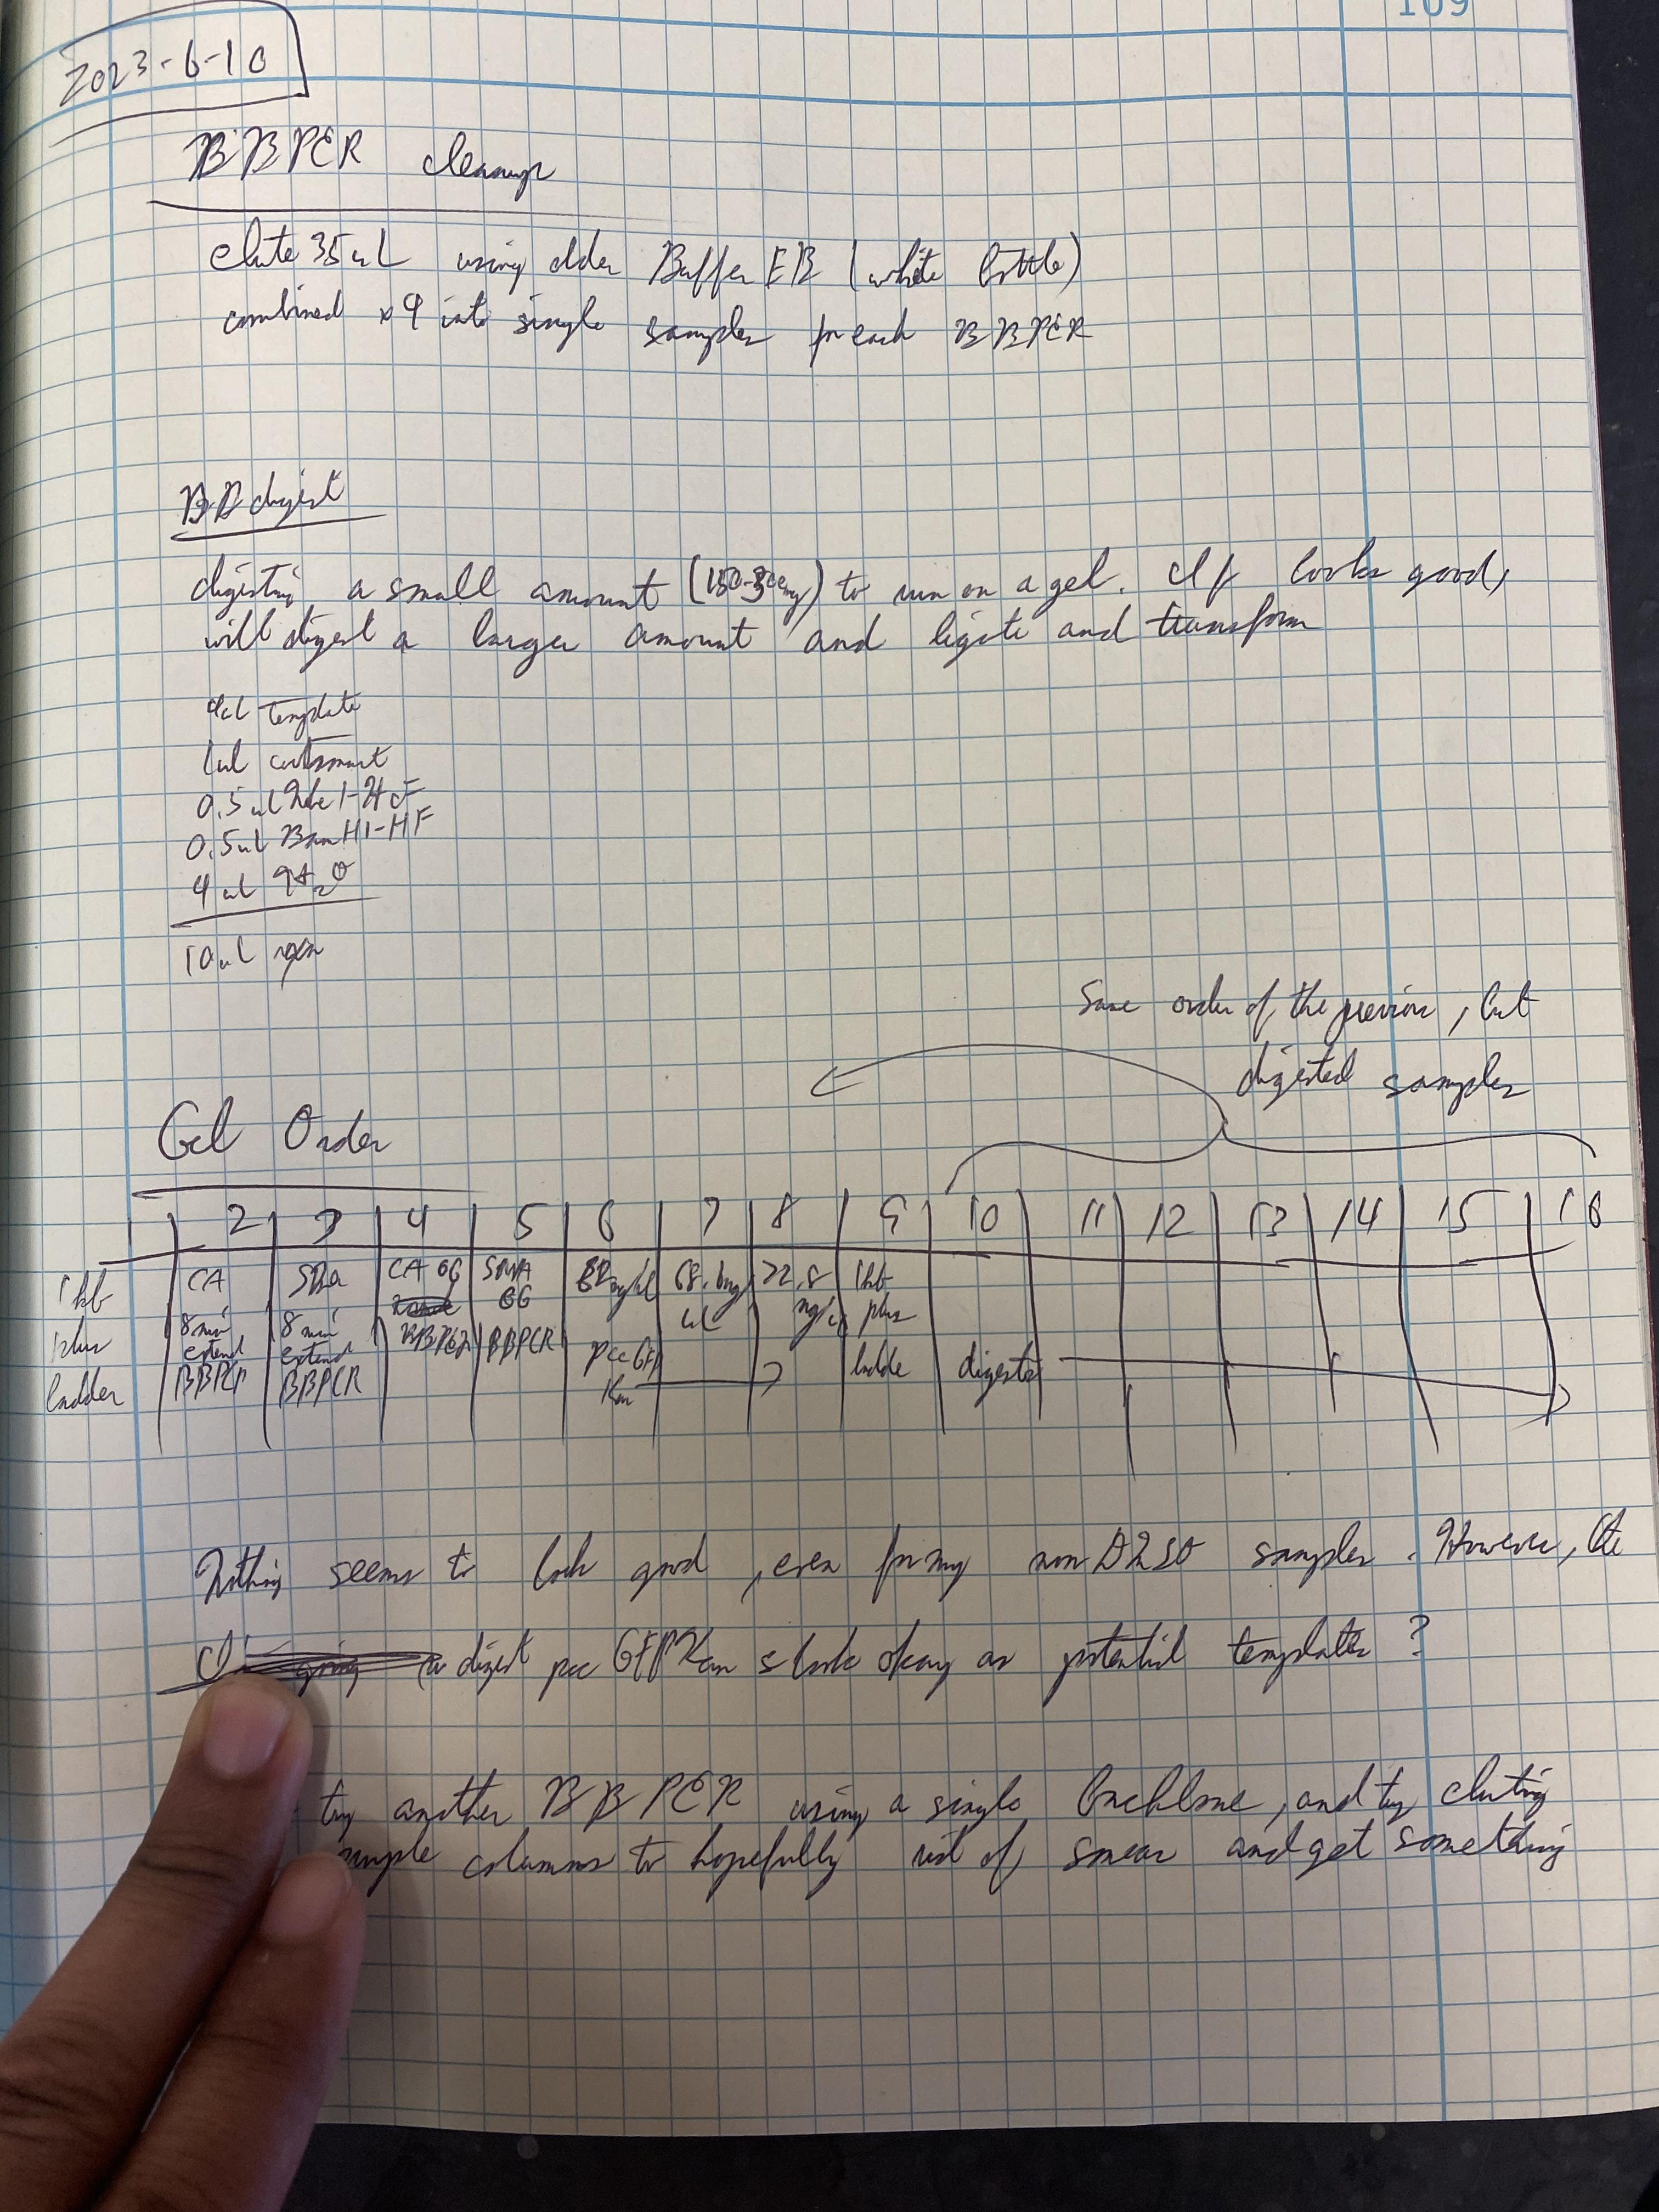 109
2023-6-10
BBPCR cleanup
elute 35uL using older Buffer EB (white bottle)
combined x4 into single samples for each BBPCR
BB digest
digesting a small amount (150-300ng) to run on a gel. If looks good,
will digest a larger amount and ligate and transform
4uL template
1uL cutsmart
0.5uL NheI-HF
0.5uL BamHI-HF
4uL H2O
10uL rxn
Same order of the previous, but
digested samples
Gel Order
1 2 3 4 5 6 7 8 9 10 11 12 13 14 15 16
1kb plus ladder
CA 8min extend BBPCR
8min extend BBPCR
CA GG BBPCR
GG BBPCR
pcc GFP Kan
68.6ng/uL
22.8 ng/u
1kb plus ladde
digested
Nothing seems to look good, even for my non samples. However, the
digest pcc GFP Kan s look okay as potential templates?
try another BBPCR using a single backbone, and try eluting
columns to hopefully rid of smear and get something